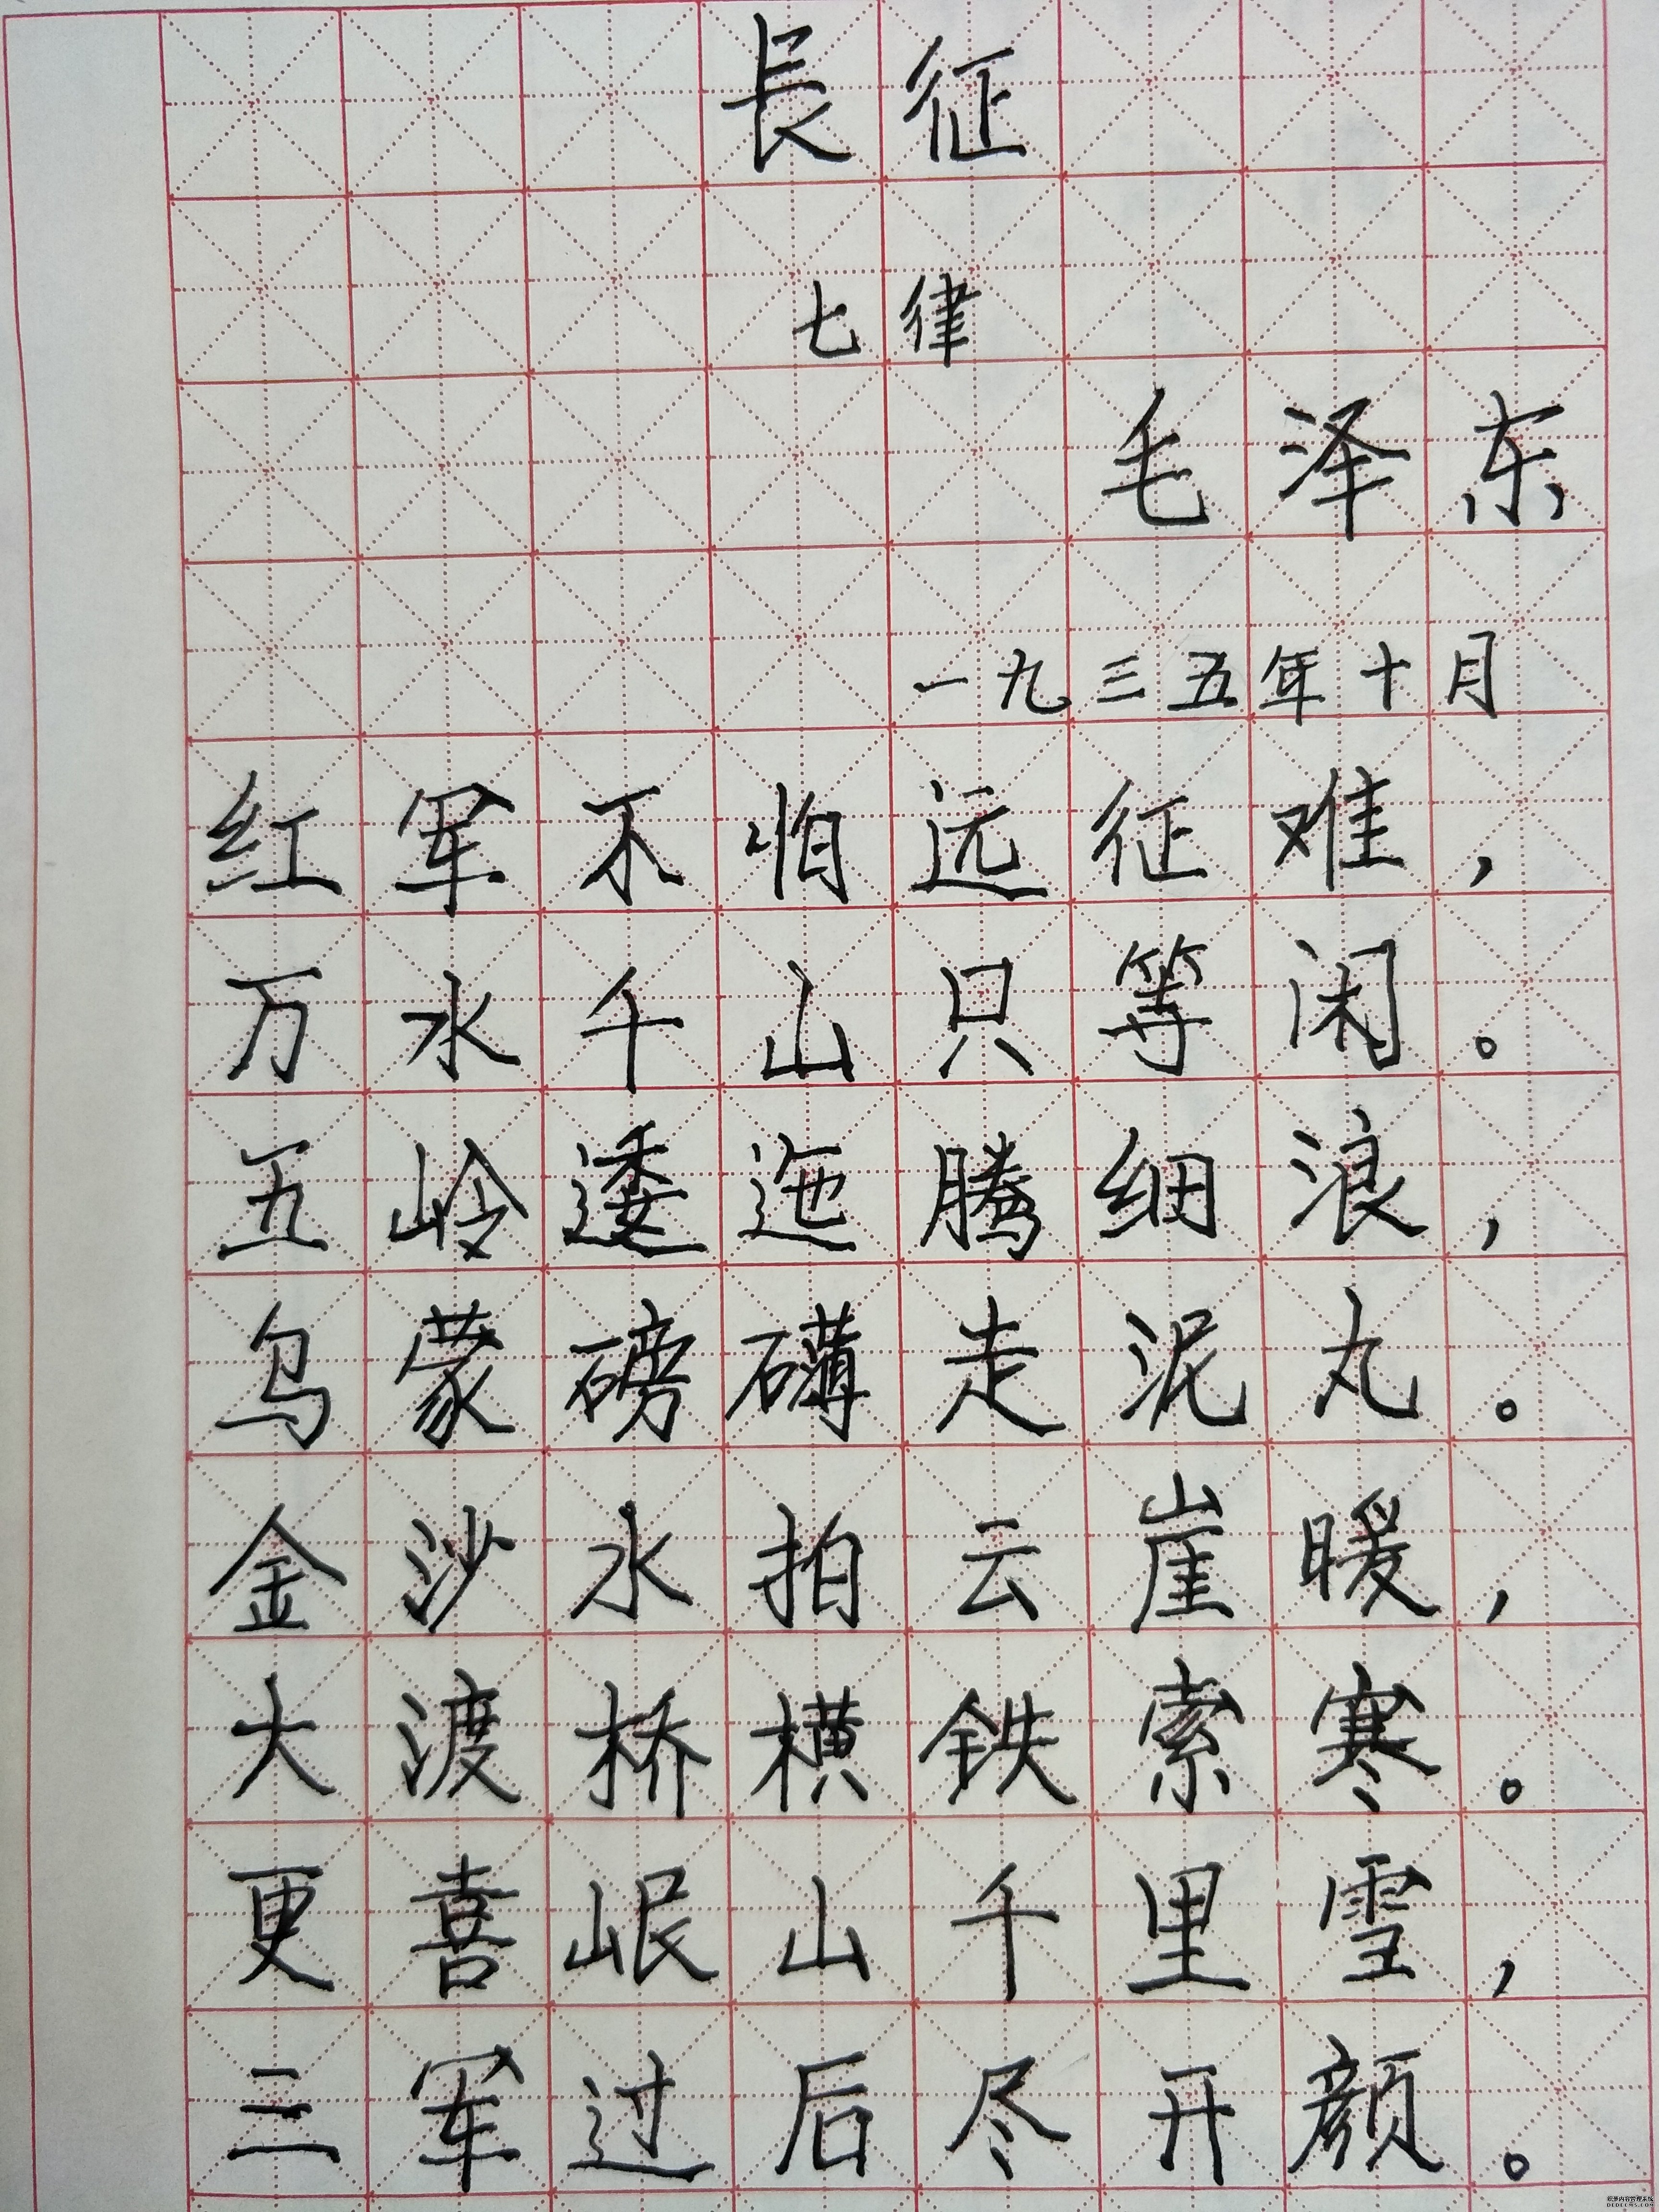 長征
七律
毛泽东
一九三五年十月
红军不怕远征难，
万水千山只等闲。
五岭逶迤腾细浪，
乌蒙磅礴走泥丸。
金沙水拍云崖暖，
大渡桥横铁索寒。
更喜岷山千里雪，
三军过后尽开颜。
织梦内容管理系统
DEDECMS.COM